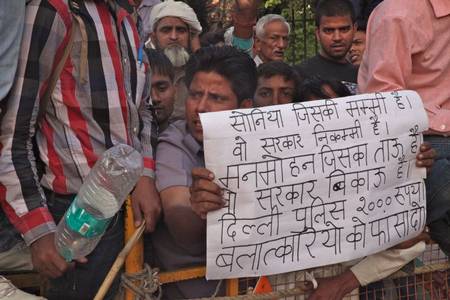 सोनिया जिसकी मम्मी है।
वो सरकार निकम्मी है।
मनमोहन जिसका ताऊ है
वो सरकार बिकाऊ है
दिल्ली पुलिस २००० रूपय
बलात्कारियो को फांसी दो